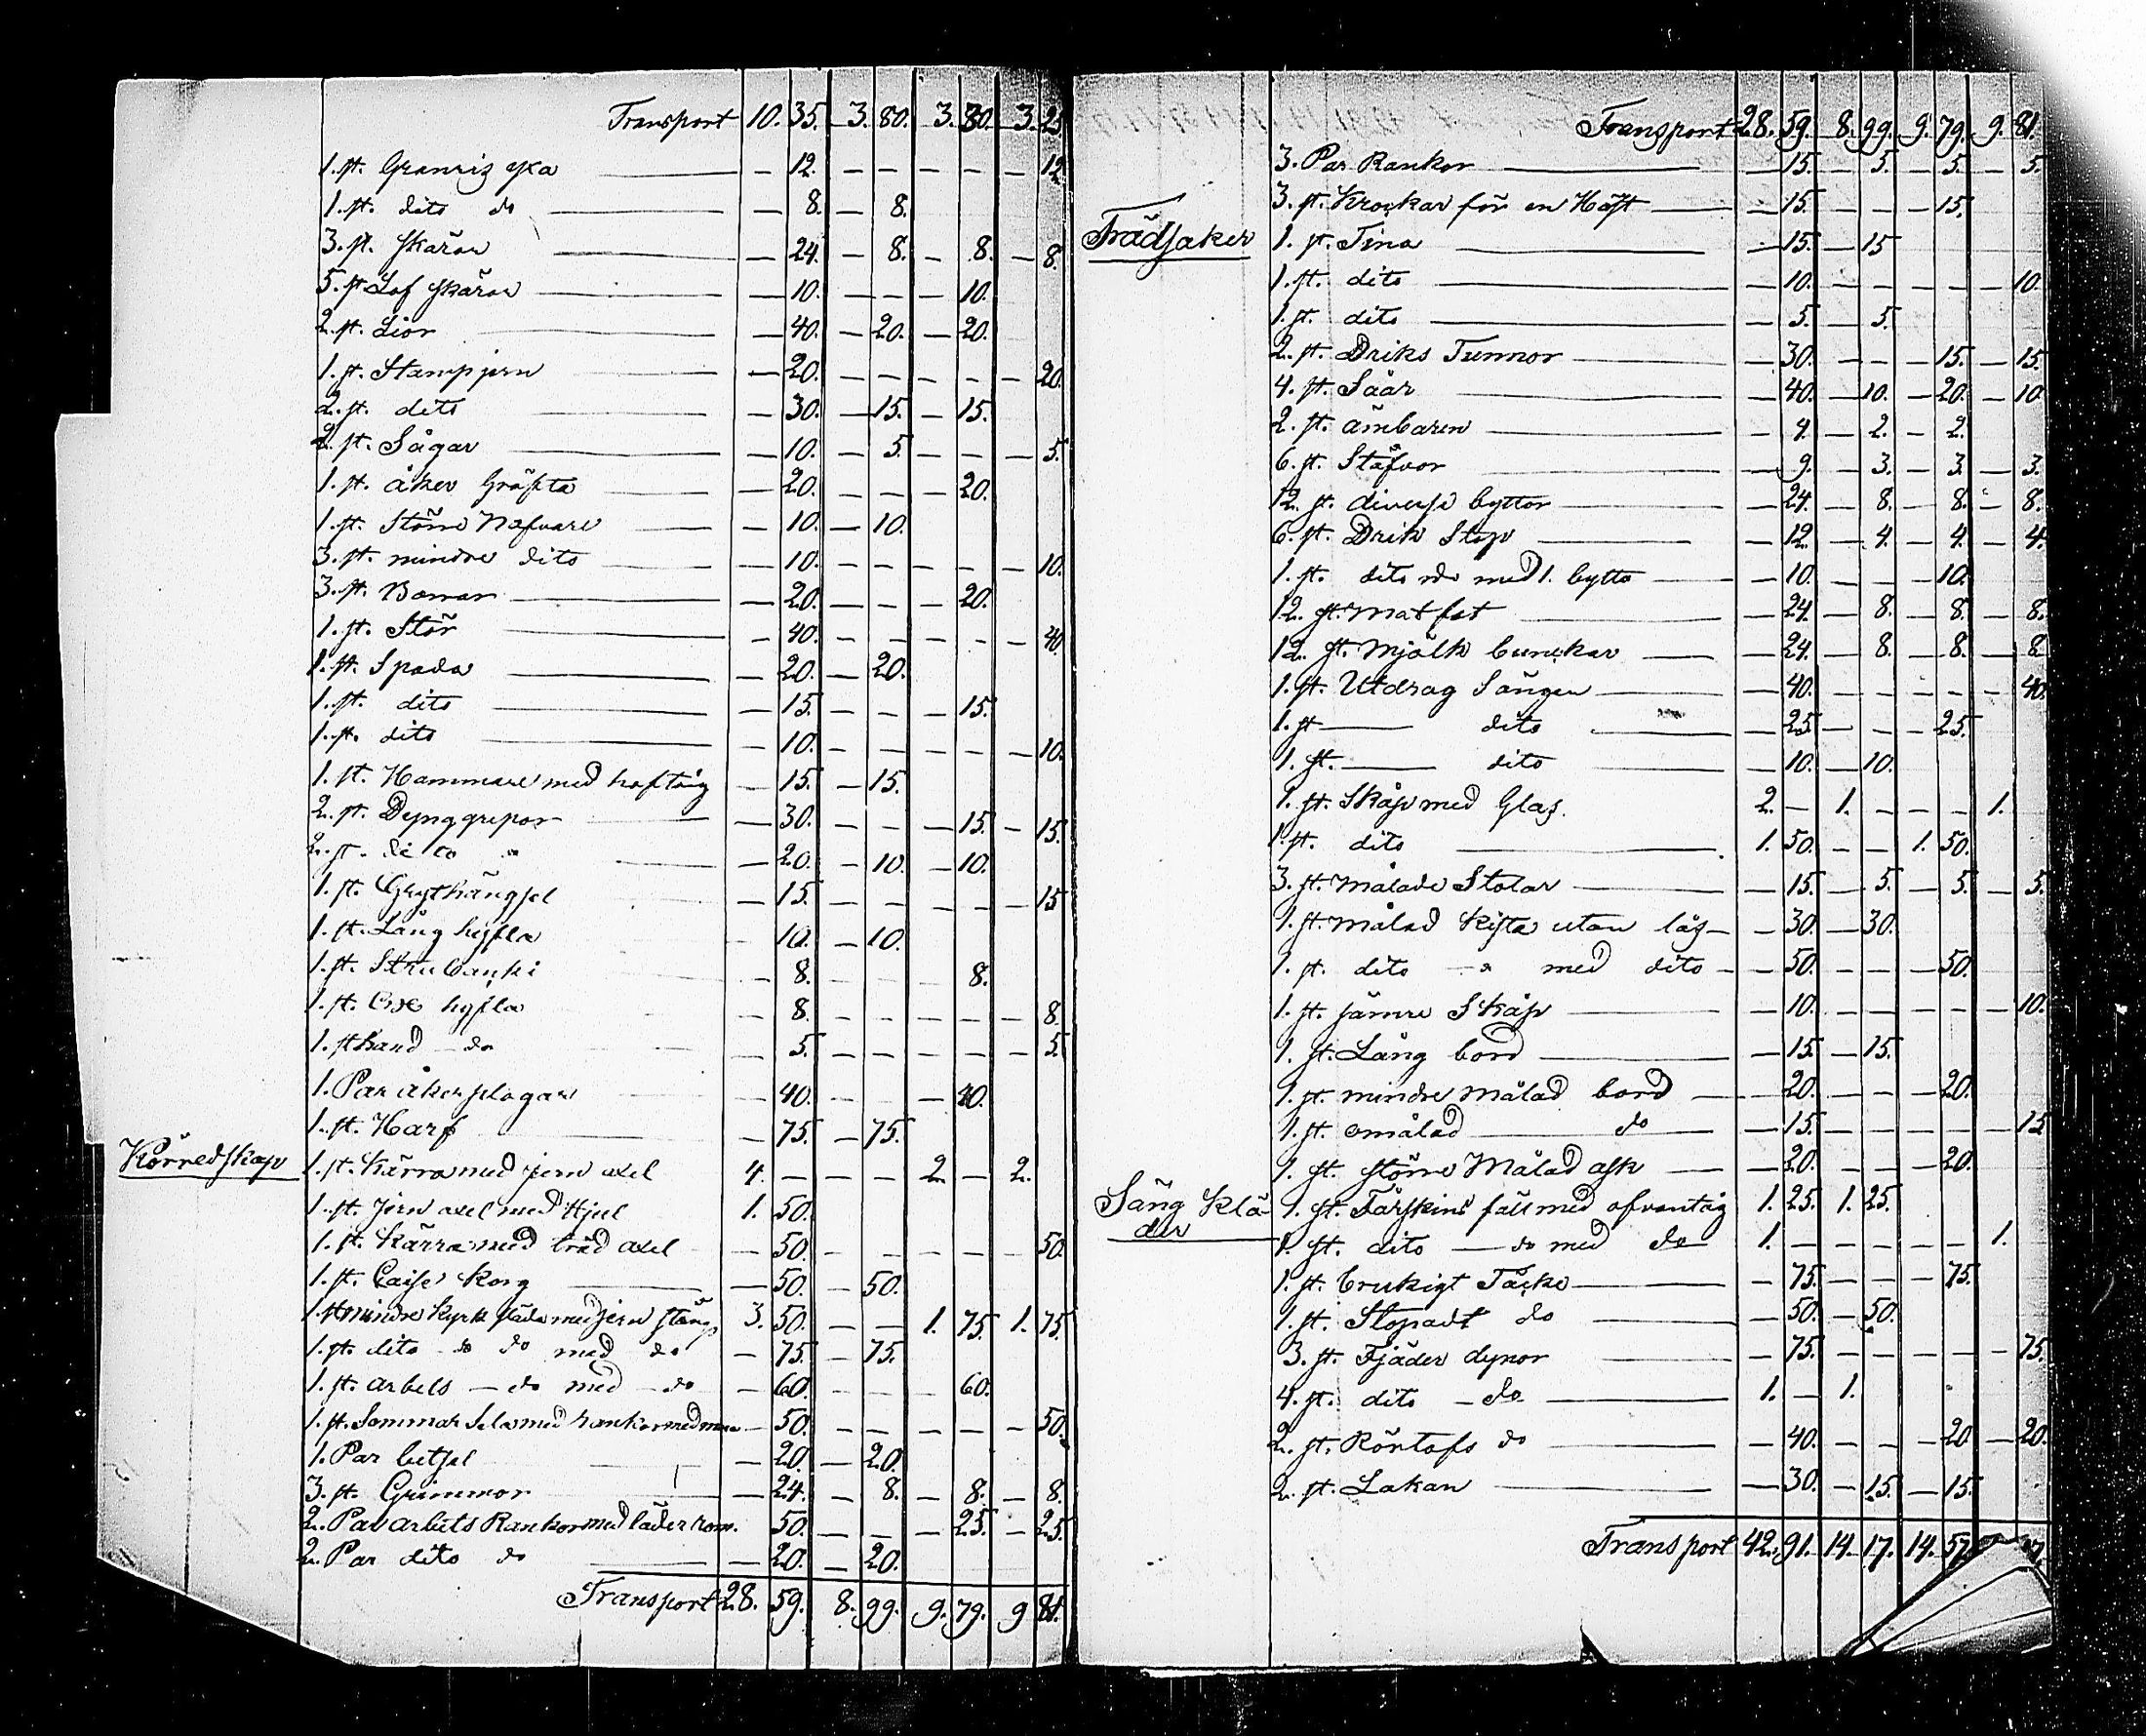 Transport 10. 35. 3. 80. 3. 30. 3. 25
1. st. Granris yxa — 12. — — — — — 12
1. st. dito do — 8. — 8.
3. st. skäror — 24. — 8. — 8. — 8.
5. st Löf skäror — 10. — — — 10.
2. st. Lior — 40. — 20. — 20.
1. st. Stampjern — 20. — — — — — 20.
2. st. dito — 30. — 15. — 15.
2. st. Sågar — 10. — 5. — — — 5.
1. st. åker Gräfta — 20. — — — 20.
1. st. Större Nafvare — 10. — 10.
3. st. mindre dito — 10. — — — — — 10.
3. st. Borrar — 20. — — — 20.
1. st. Stör — 40. — — — — — 40.
1. st. Spada — 20. — 20.
1. st. dito — 15. — — — 15.
1. st. dito — 10. — — — — — 10.
1. st. Hammare med hoftång — 15. — 15.
2. st. Dynggrepar — 30. — — — 15. — 15.
2. st. dito " — 20. — 10. — 10.
1. st. Grythängsel — 15. — — — — — 15
1. st. Lång hyfla — 10. — 10.
1. st. Strubanki — 8. — — — 8.
1. st. Oxe hyfla — 8. — — — — — 8.
1. st hand — do — 5. — — — — — 5.
1. Par åkerplogar — 40. — — — 40.
1. st. Harf — 75. — 75.
Körredskap
1. st. Kärra med jern axel 4. — — — 2. — 2.
1. st. Jern axel med Hjul 1. 50.
1. st. Kärra med träd axel — 50. — — — — — 50.
1. st. Korg — 50. — 50.
1. st mindre Kyrk släda med jern stång 3. 50. — — 1. 75. 1. 75.
1. st. dito do do med do — 75. — 75.
1. st. arbets — do med — do — 60. — — — 60.
1. st. Sommar Sela med rankor med — 50. — — — — — 50.
1. Par betsel — 20. — 20.
3. st. Grimmor — 24. — 8. — 8. — 8.
2. Par arbets Rankor med läder rem. 50. — — — 25. — 25.
2. Par dito do — 20. — 20.
Transport 28. 59. 8. 99. 9. 79. 9 81.
Transport 28. 59. 8. 99. 9. 79. 9. 81.
3. Par Rankor — 15. — 5. — 5. — 5.
3. st. Krockar för en Häst — 15. — — — 15.
Trädsaker
1. st. Tina — 15. — 15
1. st. dito — 10. — — — — — 10.
1. st. dito — 5. — 5.
2. st. Driks Tunnor — 30. — — — 15. — 15.
4. st. Såår — 40. — 10. — 20. — 10
2. st. ämbaren — 4. — 2. — 2.
6. st. Stäfvor — 9. — 3. — 3. — 3.
12. st. diverse byttor — 24. — 8. — 8. — 8.
6. st. Drik Stop — 12. — 4. — 4. — 4.
1. st. dito do med 1. bytta — 10. — — — 10.
12. st. Mat fat — 24. — 8. — 8. — 8.
12. st. Mjölk bunckar — 24. — 8. — 8. — 8
1. st. Utdrag Sängen — 40. — — — — — 40.
1. st — dito — 25. — — — 25.
1. st. — dito — 10. — 10.
1. st. Skåp med Glas. 2. — 1. — — — 1.
1. st. dito 1. 50. — — 1. 50.
3. st. målade Stolar — 15. — 5. — 5. — 5.
1. st. målad Kista utan lås — 30. — 30.
1. st. dito — " med dito — 50. — — — 50.
1. st. sämre Skåp — 10. — — — — — 10.
1. st. Lång bord — 15. — 15.
1. st. mindre målad bord — 20. — — — 20.
1. st. omålad do — 15. — — — — — 15
1. st. större Målad ask — 20. — — — 20.
Säng Klä-
der
1. st. Fårskins fäll med ofvantåg 1. 25. 1. 25.
1. st. dito — do med do 1. — — — — — 1.
1. st. brukigt Täcke — 75. — — — 75.
1. st. Stopadt do — 50. — 50.
3. st. Fjäder dynor — 75. — — — — — 75.
4. st. dito — do 1. — 1.
2. st. Rörtofs do — 40. — — — 20 — 20.
2. st. Lakan — 30. — 15. — 15.
Transport 42. 91. 14. 17. 14. 57